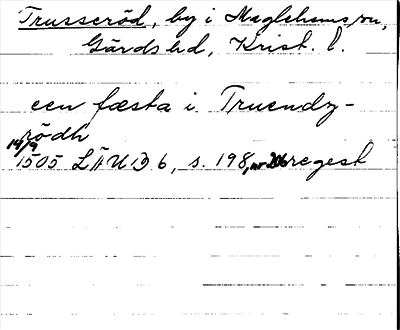 Trusseröd, by i Maglehems sn,
Gärds hd, Krist. l.
een fæsta i Truendz-
rödh
14/9
1505 LÄUB 6, s. 198, nr 206 regest